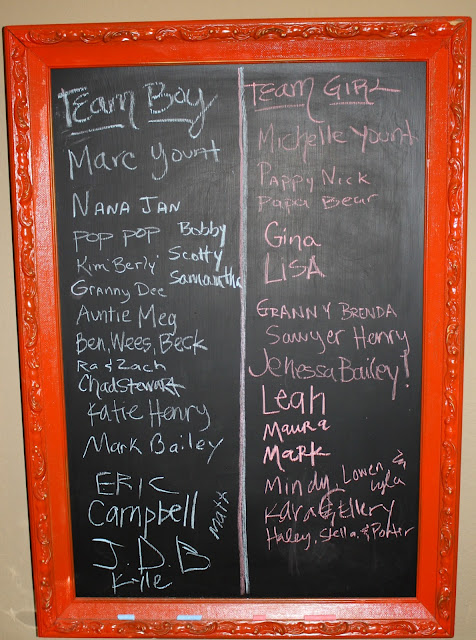 TEAM BOY
Marc Yount
NANA JAN
POP POP Bobby
Scotty
Kim'Berly'
Samantha
Granny Dee
Auntie Meg
Ben, Wees, Beck
Ra & Zach
Chad Stewart
Katie Henry
Mark Bailey
ERIC
Campbell
Matt
J.D.B
Kyle
TEAM GIRL
Michelle Yount
Pappy Nick
Papa Bear
Gina
LISA
GRANNY BRENDA
Sawyer Henry
Jenessa Bailey!
Leah
Maura
Mark
Mindy, Lowen &
Lyla
Kara & Ellery
Haley, Stella, & Porter